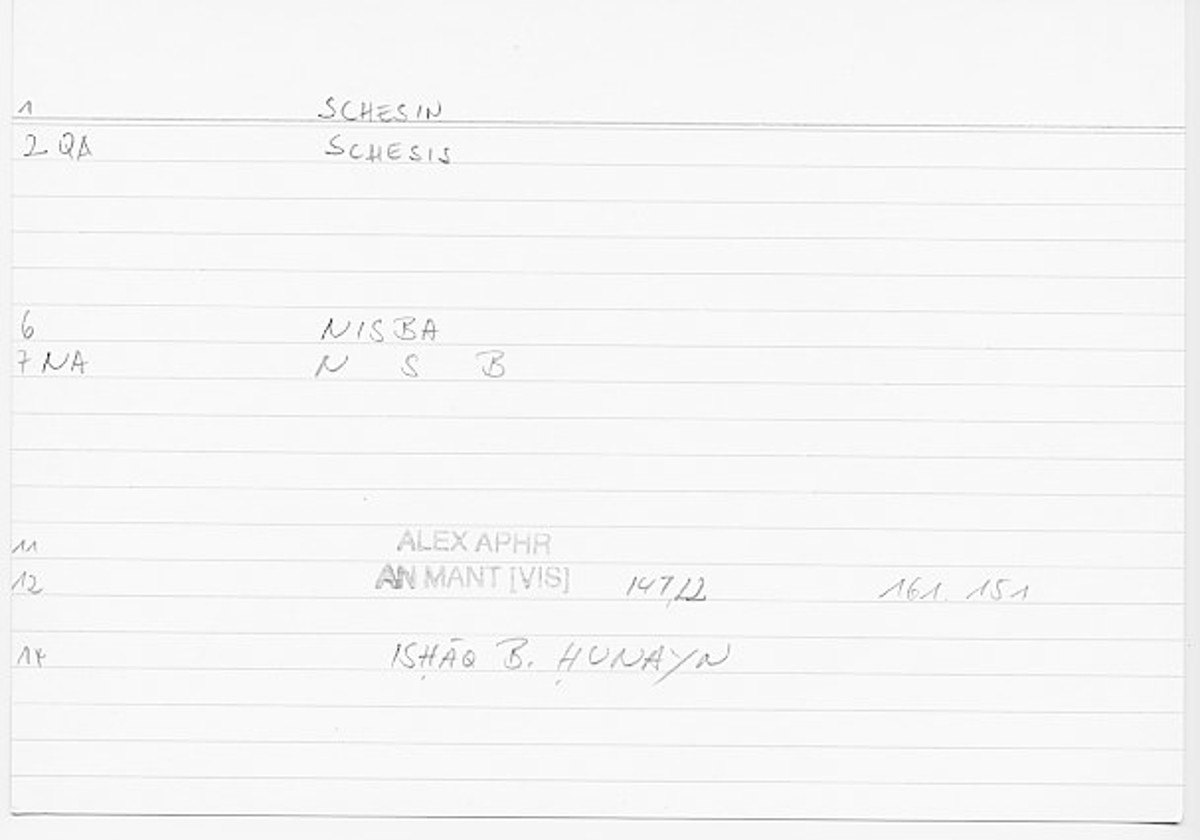 1 SCHESIN
2 QA SCHESIS
6 NISBA
7 NA N S B
11 ALEX APHR
12 AN MANT [VIS] 147,22 161. 151
14 ISḤĀQ B. ḤUNAYN